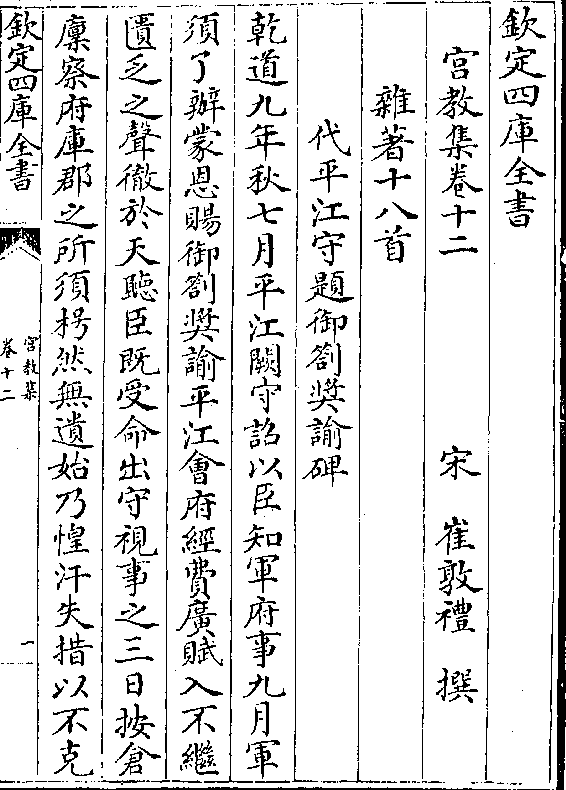 欽定四庫全書
宫教集卷十二
宋 崔敦禮 撰
雜著十八首
代平江守題御劄奬諭碑
乾道九年秋七月平江闕守詔以臣知軍府事九月軍
須了辦蒙恩賜御劄奬諭平江會府經費廣賦入不繼
匱乏之聲徹於天聽臣既受命出守視事之三日按倉
廩察府庫郡之所須枵然無遺始乃惶汗失措以不克
欽定四庫全書
宫教集
卷十二
一